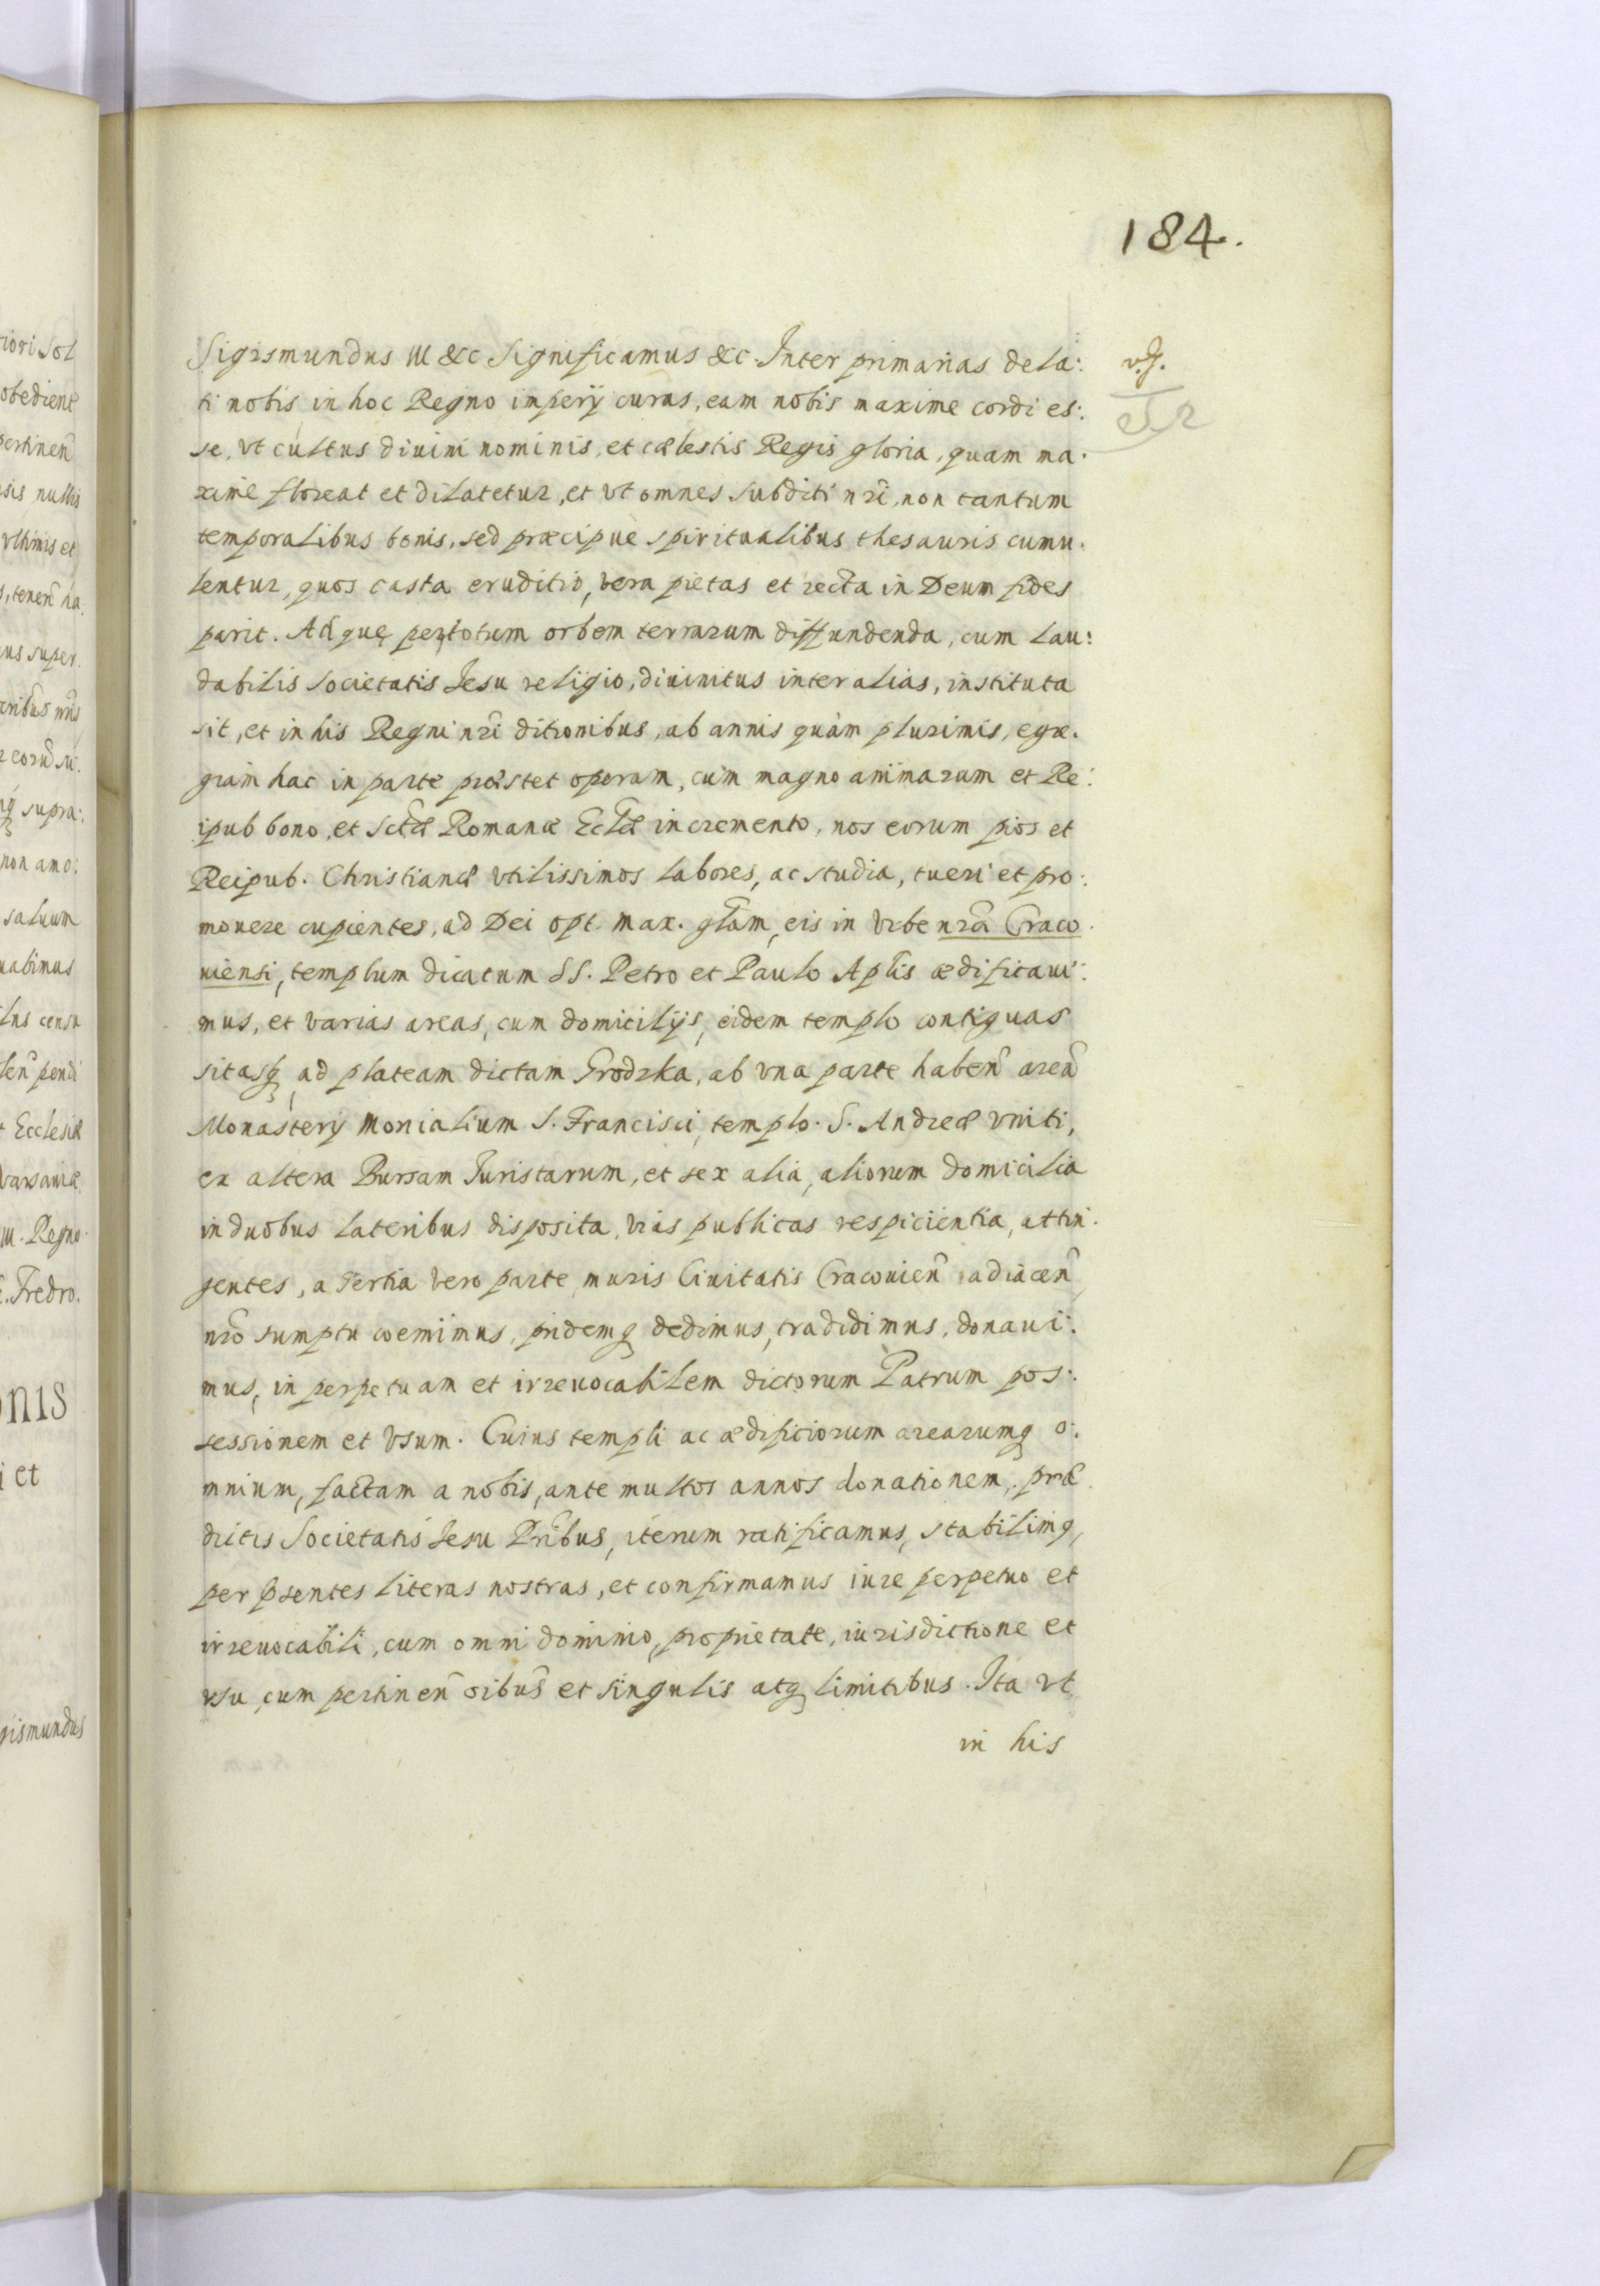 184.
Sigismundus III &c Significamus &c. Inter primarias dela:
ti nobis in hoc Regno imperij curas, eam nobis maxime cordi es:
se, vt cultus diuini nominis, et cælestis Regis gloria, quam ma:
xime floreat et dilatetur, et vt omnes subditi nr̃i, non tantum
temporalibus bonis, sed præcipuè spiritualibus thesauris cumu:
lentur, quos casta eruditio, vera pietas et recta in Deum fides
parit. Ad quę per totum orbem terrarum diffundenda, cum lau:
dabilis Societatis Jesu religio, diuinitus inter alias, instituta
sit, et in his Regni nr̃i ditionibus, ab annis quàm plurimis, egre:
giam hac in parte præstet operam, cum magno animarum et Re:
ipub bono, et Sctæ̃ Romanæ Eclæ̃ incremento, nos eorum pios et
Reipub. Christianæ vtilissimos labores, ac studia, tueri et pro:
mouere cupientes, ad Dei opt. max. glãm, eis in vrbe nr̃a Craco:
uiensi, templum dicatum SS. Petro et Paulo Aplĩs ædificaui:
mus, et varias areas, cum domicilijs, eidem templo contiguas
sitasq̨ ad plateam dictam Grodzka, ab vna parte habeñ areã
Monasterij Monialium S. Francisci, templo S. Andreæ vniti,
ex altera Bursam Juristarum, et sex alia, aliorum domicilia
in duobus lateribus disposita, vias publicas respicientia, attin:
gentes, a tertia vero parte muris Ciuitatis Cracouieñ adiaceñ
nr̃o sumptu coemimus, pridemq̨ dedimus, tradidimus, donaui:
mus, in perpetuam et irreuocabilem dictorum Patrum pos:
sessionem et vsum. Cuius templi ac ædificiorum arearumq̨ o:
mnium, factam a nobis, ante multos annos donationem, præ
dictis Societatis Jesu Pr̃ibus, iterum ratificamus, stabilimq̨,
per p̃sentes literas nostras, et confirmamus iure perpetuo et
irreuocabili, cum omni dominio, proprietate, iurisdictione et
vsu, cum pertineñ oibus̃ et singulis atq̨ limitibus. Ita vt
in his